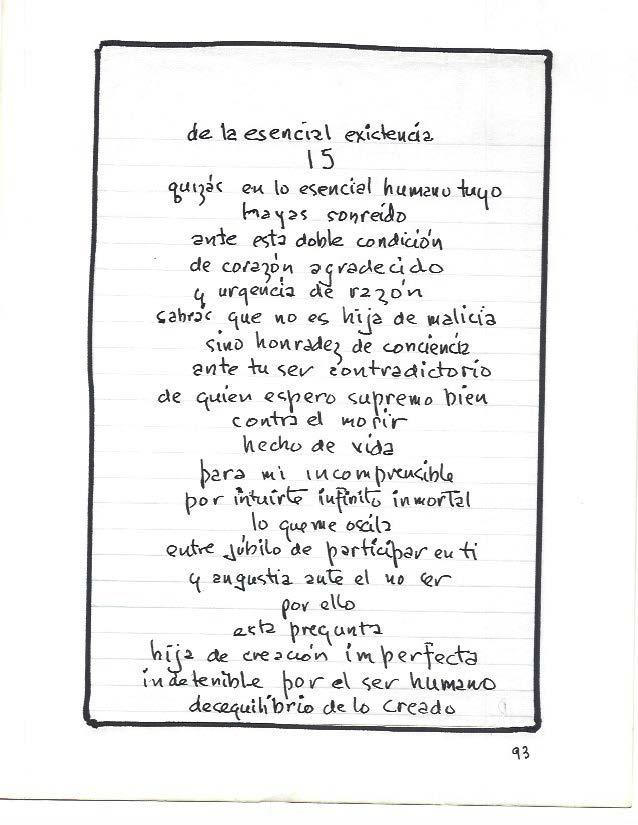 de la esencial existencia
15
quizás en lo esencial humano tuyo
hayas sonreído
ante esta doble condición
de corazón agradecido
y urgencia de razón
sabrás que no es hija de malicia
sino honradez de conciencia
ante tu ser contradictorio
de quien espero supremo bien
contra el morir
hecho de vida
para mi incomprensible
por intuirte infinito inmortal
lo que me oscila
entre júbilo de participar en ti
y angustia ante el no ser
por ello
esta pregunta
hija de creación imperfecta
indetenible por el ser humano
desequilibrio de lo creado
93